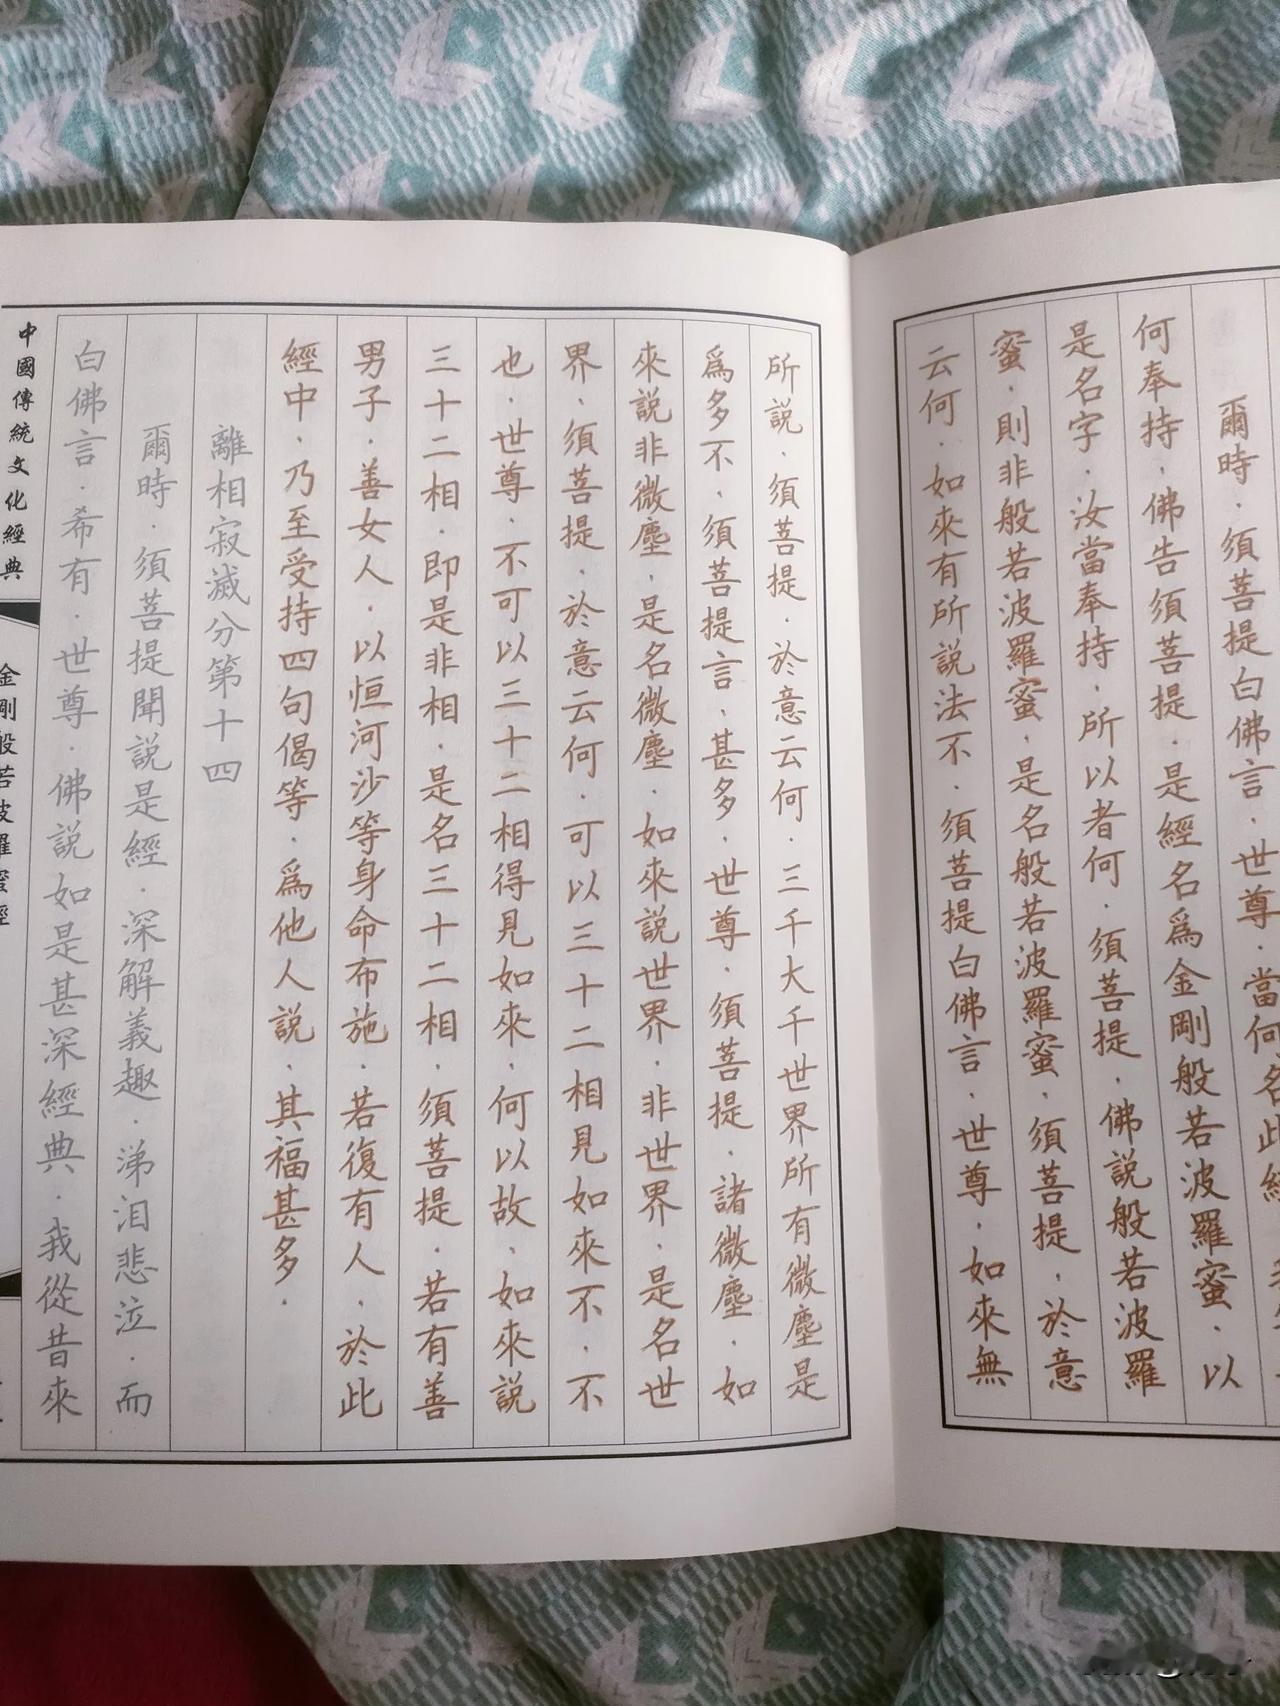 爾時．須菩提白佛言．世尊．當何名此經
何奉持．佛告須菩提．是經名為金剛般若波羅蜜．以
是名字．汝當奉持．所以者何．須菩提．佛說般若波羅
蜜．則非般若波羅蜜．是名般若波羅蜜．須菩提．於意
云何．如來有所說法不．須菩提白佛言．世尊．如來無
所說．須菩提．於意云何．三千大千世界所有微塵是
為多不．須菩提言．甚多．世尊．須菩提．諸微塵．如
來說非微塵．是名微塵．如來說世界．非世界．是名世
界．須菩提．於意云何．可以三十二相見如來不．不
也．世尊．不可以三十二相得見如來．何以故．如來說
三十二相．即是非相．是名三十二相．須菩提．若有善
男子．善女人．以恒河沙等身命布施．若復有人．於此
經中．乃至受持四句偈等．為他人說．其福甚多．
離相寂滅分第十四
爾時．須菩提聞說是經．深解義趣．涕泪悲泣．而
白佛言．希有．世尊．佛說如是甚深經典．我從昔來
中國傳統文化經典
金剛般若波羅蜜經